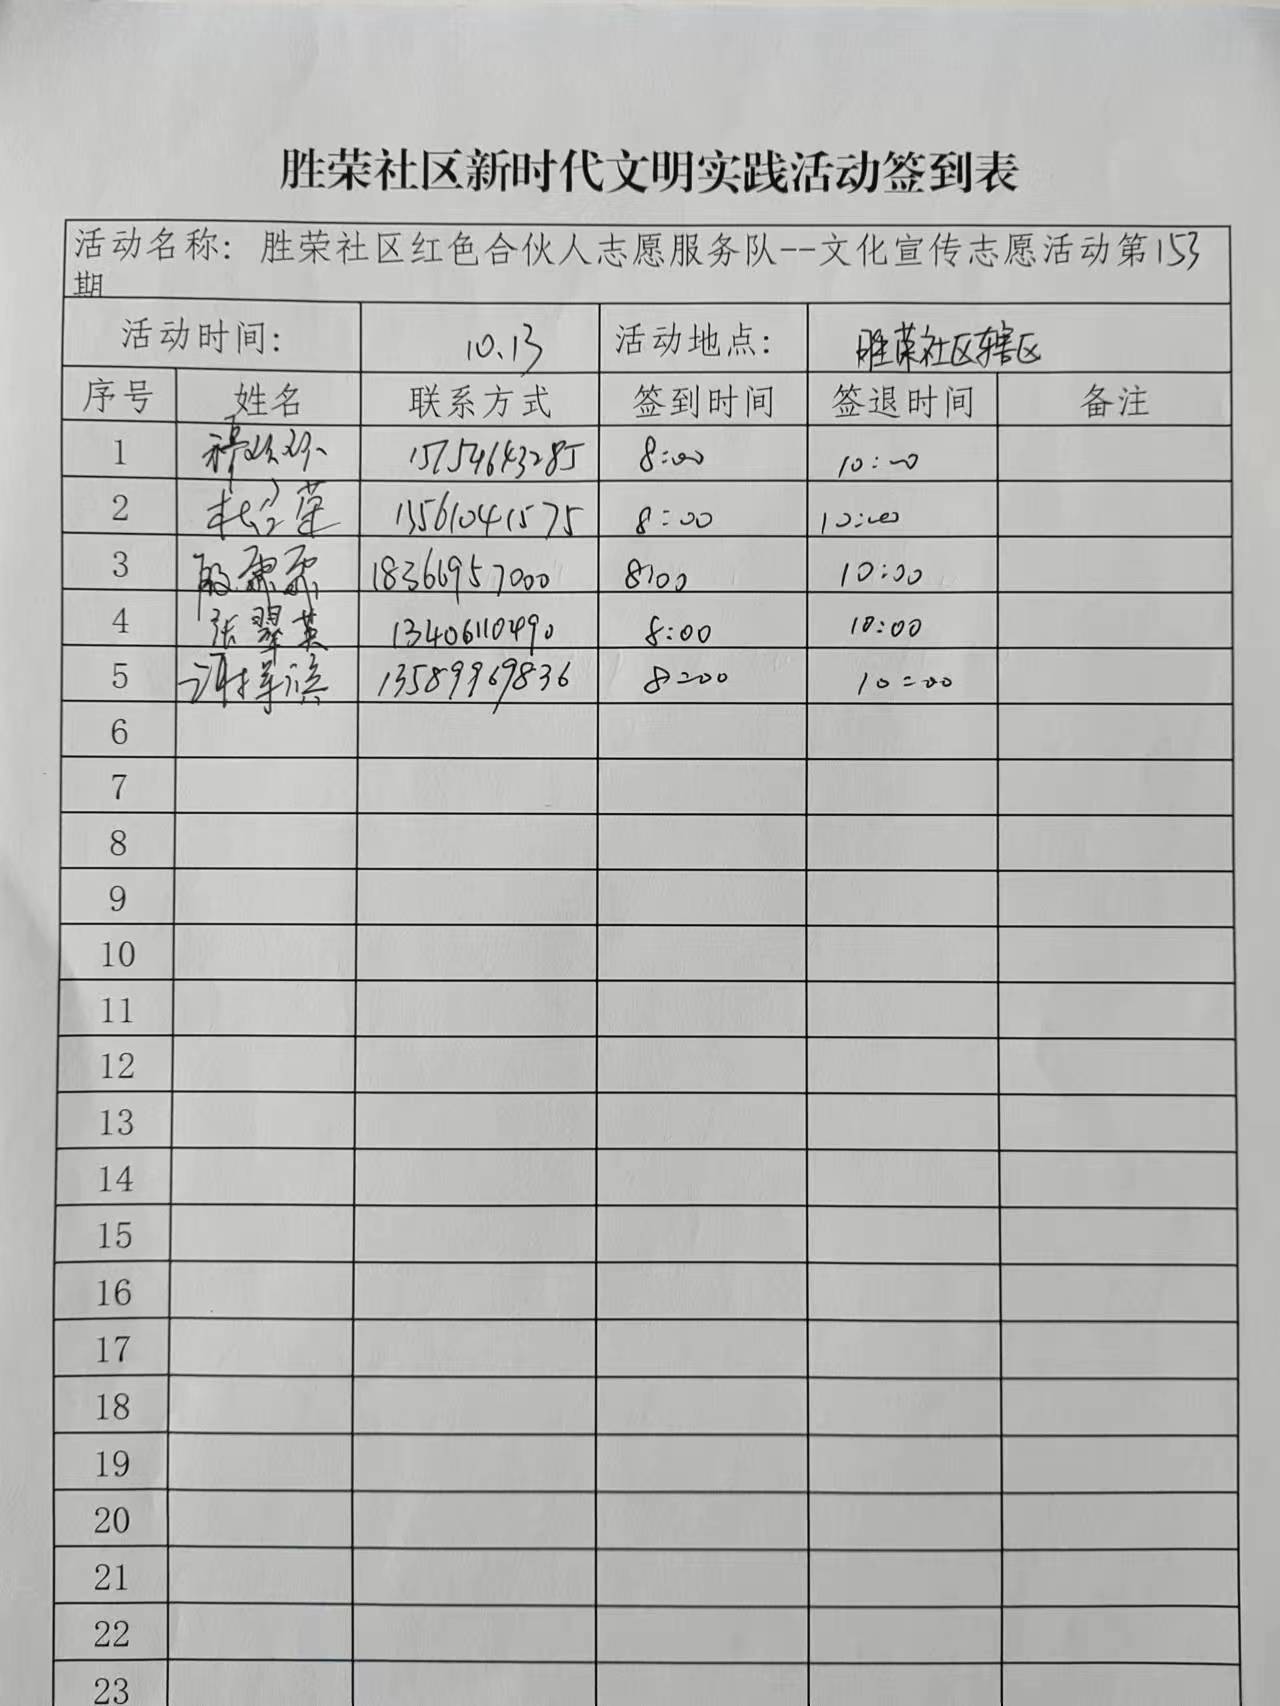 胜荣社区新时代文明实践活动签到表
活动名称：胜荣社区红色合伙人志愿服务队--文化宣传志愿活动第153
期
活动时间： 10.13 活动地点： 胜荣社区辖区
序号 姓名 联系方式 签到时间 签退时间 备注
1 15754643285 8:00 10:00
2 杜召荣 13561041575 8:00 10:00
3 18366957000 8:00 10:00
4 张翠英 13406110490 8:00 10:00
5 13589969836 8:00 10:00
6
7
8
9
10
11
12
13
14
15
16
17
18
19
20
21
22
23